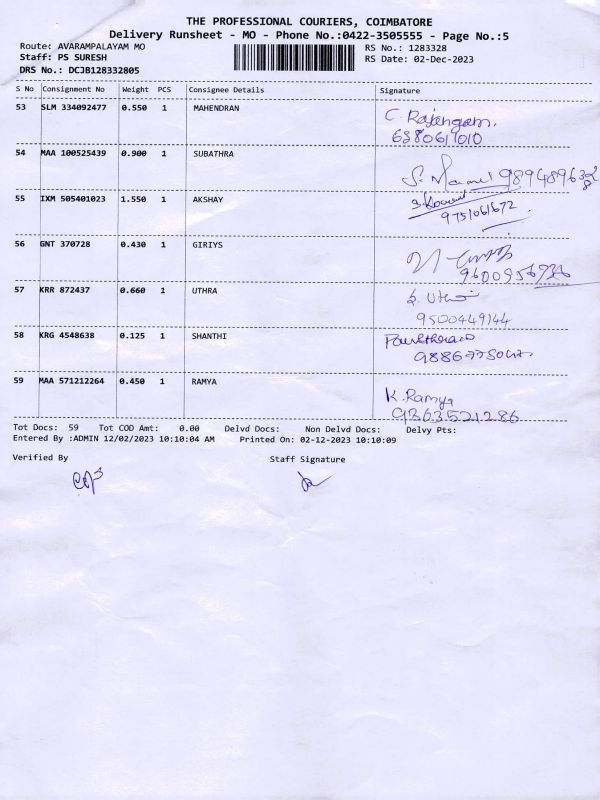 THE PROFESSIONAL COURIERS, COIMBATORE
Delivery Runsheet - MO - Phone No.:0422-3505555 - Page No.:5
Route: AVARAMPALAYAM MO RS No.: 1283328
Staff: PS SURESH RS Date: 02-Dec-2023
DRS No.: DCJB128332805
S No Consignment No Weight PCS Consignee Details Signature
53 SLM 334092477 0.550 1 MAHENDRAN C. Rajangam.
54 MAA 100525439 0.900 1 SUBATHRA
55 IXM 505401023 1.550 1 AKSHAY
9751061672
56 GNT 370728 0.430 1 GIRIYS
57 KRR 872437 0.660 1 UTHRA
9500449144
58 KRG 4548638 0.125 1 SHANTHI
59 MAA 571212264 0.450 1 RAMYA K. Ramya
9363521286
Tot Docs: 59 Tot COD Amt: 0.00 Delvd Docs: Non Delvd Docs: Delvy Pts:
Entered By :ADMIN 12/02/2023 10:10:04 AM Printed On: 02-12-2023 10:10:09
Verified By Staff Signature